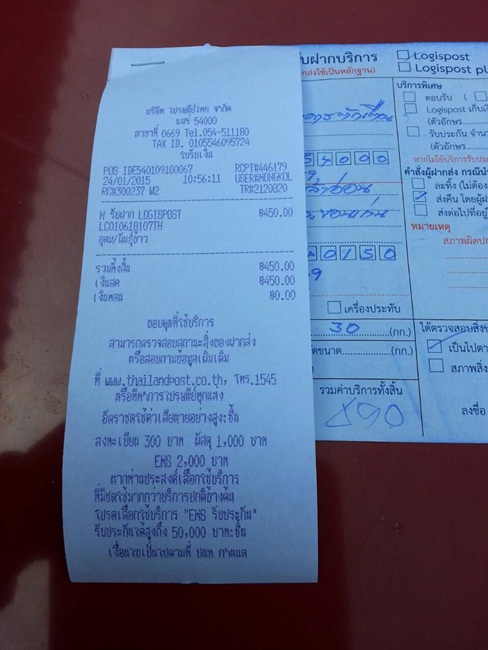 บริษัท ไปรษณีย์ไทย จำกัด
แพร่ 54000
สาขาที่ 0669 Tel.054-511180
TAX ID. 0105546095724
ใบรับเงิน
POS ID#E540109100067 RCPT#446179
24/01/2015 10:56:11 USER#WONGKOL
RC#300237 W2 TR#2120820
N รับฝาก LOGISPOST ฿450.00
LC010618107TH
อุดม/พันธุ์ข้าว
รวมทั้งสิ้น ฿450.00
เงินสด ฿450.00
เงินทอน ฿0.00
ขอบคุณที่ใช้บริการ
สามารถตรวจสอบสถานะสิ่งของฝากส่ง
หรือสอบถามข้อมูลเพิ่มเติม
ที่ www.thailandpost.co.th, โทร.1545
หรือที่ทำการไปรษณีย์ทุกแห่ง
อัตราชดใช้ค่าเสียหายอย่างสูงชิ้น
ลงทะเบียน 300 บาท พัสดุ 1,000 บาท
EMS 2,000 บาท
หากท่านประสงค์เลือกใช้บริการ
ที่มีชดใช้มากกว่าบริการปกติข้างต้น
โปรดเลือกใช้บริการ "EMS รับประกัน"
รับประกันได้สูงถึง 50,000 บาท/ชิ้น
เงื่อนไขเป็นไปตามที่ ปณท กำหนด
รับฝากบริการ
Logispost
Logispost pl
บริการพิเศษ
ตอบรับ
Logispost เก็บเงิ
(ตัวอักษร
รับประกัน จำน
(ตัวอักษร
54000
คำสั่งผู้ฝากส่ง กรณีนำ
ละทิ้ง (ไม่ต้อง
ส่งคืน โดยผู้ฝ
ส่งต่อไปที่อยู่
หมายเหตุ
สภาพผิดปก
40150
เครื่องประทับ
30 (กก.)
ขนาด (กก.)
ได้ตรวจสอบสิ่ง
เป็นไปตา
สภาพสิ่ง
รวมค่าบริการทั้งสิ้น
ลงชื่อ